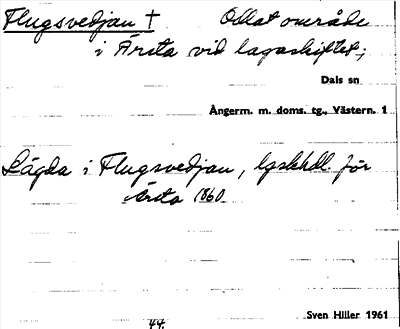 Flugsvedjan † Odlat område
i Ärsta vid lagaskiftet;
Dals sn
Ångerm. m. doms. tg., Västern. 1
Lägda i Flugsvedjan, lgskhdl. för
Ärsta 1860
Sven Hiller 1961
44.